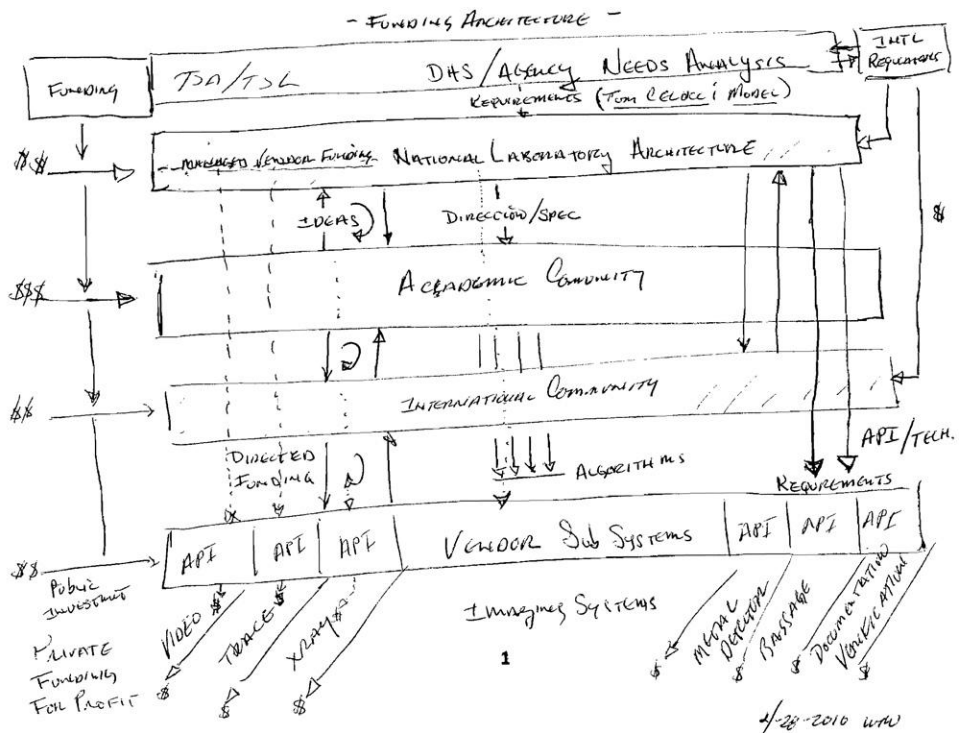 - FUNDING ARCHITECTURE -
FUNDING
TSA/TSL DHS/AGENCY NEEDS ANALYSIS
INTL
REQUIREMENTS
REQUIREMENTS (TOM CELUCCI MODEL)
$$
MANAGED VENDOR FUNDING NATIONAL LABORATORY ARCHITECTURE
IDEAS
DIRECCION/SPEC
$
$$$
ACADEMIC COMUNITY
$$
INTERNATIONAL COMMUNITY
DIRECTED
FUNDING
ALGORITHMS
API/TECH.
REQUREMENTS
$$
API API API VENDOR SUB SYSTEMS API API API
PUBLIC
INVESTMENT
VIDEO $
TRACE $
XRAY $
IMAGING SYSTEMS
METAL
DETECTOR
BAGGAGE
DOCUMENTATION
VERIFICATION
PRIVATE
FUNDING
FOR PROFIT
$ $ $ $ $ $ $
1
-28-2010